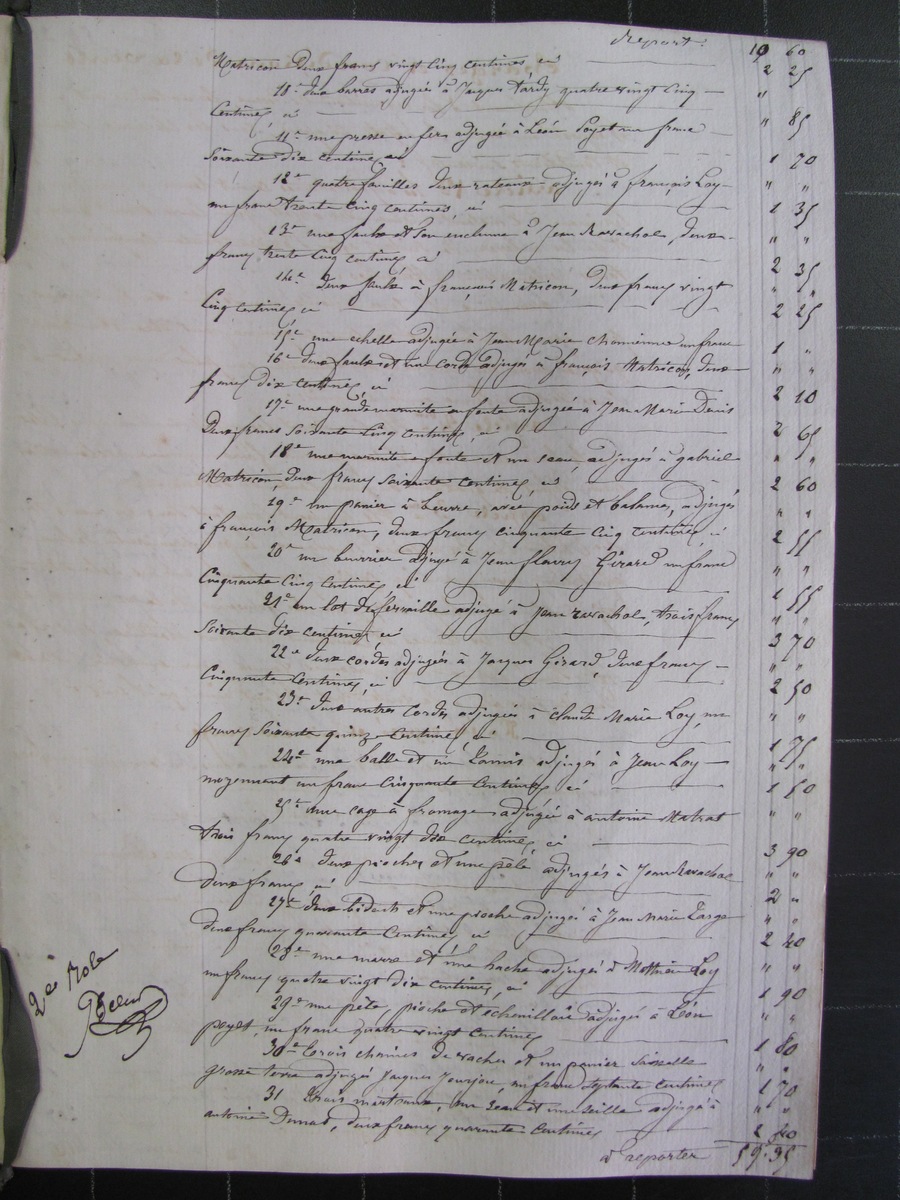 Report. 10 60
Matricon deux francs vingt cinq centimes, ci 2 25
10e deux barres adjugées à Jacques Tardy quatre vingt cinq " 
Centimes ci " 85
11e une presse en fer adjugée à Léon Peyet un franc
Soixante dix centimes ci 1 70
12e quatre faucilles deux rateaux adjugés à françois Loy " "
un franc trente cinq centimes, ci 1 35
13e une faulx et son enclume à Jean Ravachol, deux " "
francs trente cinq centimes ci 2 35
14e deux faulx à françois Matricon, deux francs vingt " "
Cinq centimes ci 2 25
15e une echelle adjugée à Jean Marie un franc 1 "
16e deux faulx et une corde adjugés à françois Matricon, deux " "
francs dix centimes, ci 2 10
17e une grande marmite en fonte adjugée à Jean Marie Denis
Deux francs Soixante Cinq centimes, ci 2 65
18e une marmite en fonte et un seau, adjugés à gabriel " "
Matricon deux francs soixante centimes, ci 2 60
19e un panier à beurre, avec poids et balance, adjugés " "
à françois Matricon, deux francs cinquante cinq centimes, ci 2 55
20e un beurrier adjugé à Jean fleury Girard un franc " "
Cinquante Cinq centimes, ci 1 55
21e un lot de ferraille adjugé à Jean Ravachol, trois francs " "
Soixante dix centimes, ci 3 70
22e deux cordes adjugées à Jacques Girard, deux francs " "
Cinquante Centimes, ci 2 50
23e deux autres Cordes adjugées à claude Marie Loy, un " "
francs Soixante quinze Centimes ci 1 75
24e une balle et un adjugés à Jean Loy " "
moyennant un franc Cinquante Centimes ci 1 50
25e une cage à fromage adjugée à antoine Matrat " "
trois francs quatre vingt dix centimes, ci 3 90
26e deux pioches et une pèle adjugés à Jean Ravachol " "
deux francs, ci 2 "
27e deux bidents et une pioche adjugés à Jean Marie Large " "
deux francs quarante Centimes ci 2 40
28e une marre et une hache adjugés à Mathieu Loy " "
un francs quatre vingt dix centimes, ci 1 90
29e une pèle, pioche et echenilloir adjugés à Léon " "
peyet, un franc quatre vingt Centimes 1 80
30e trois chaines de vaches et un panier vaisselle " "
grosse terre adjugés Jacques Jourjon, un franc septante centimes 1 70
31 trois marteaux, un seau et une seille adjugés à " "
antoine Dumas, deux francs quarante centimes 2 40
à reporter 59.35
2e Role